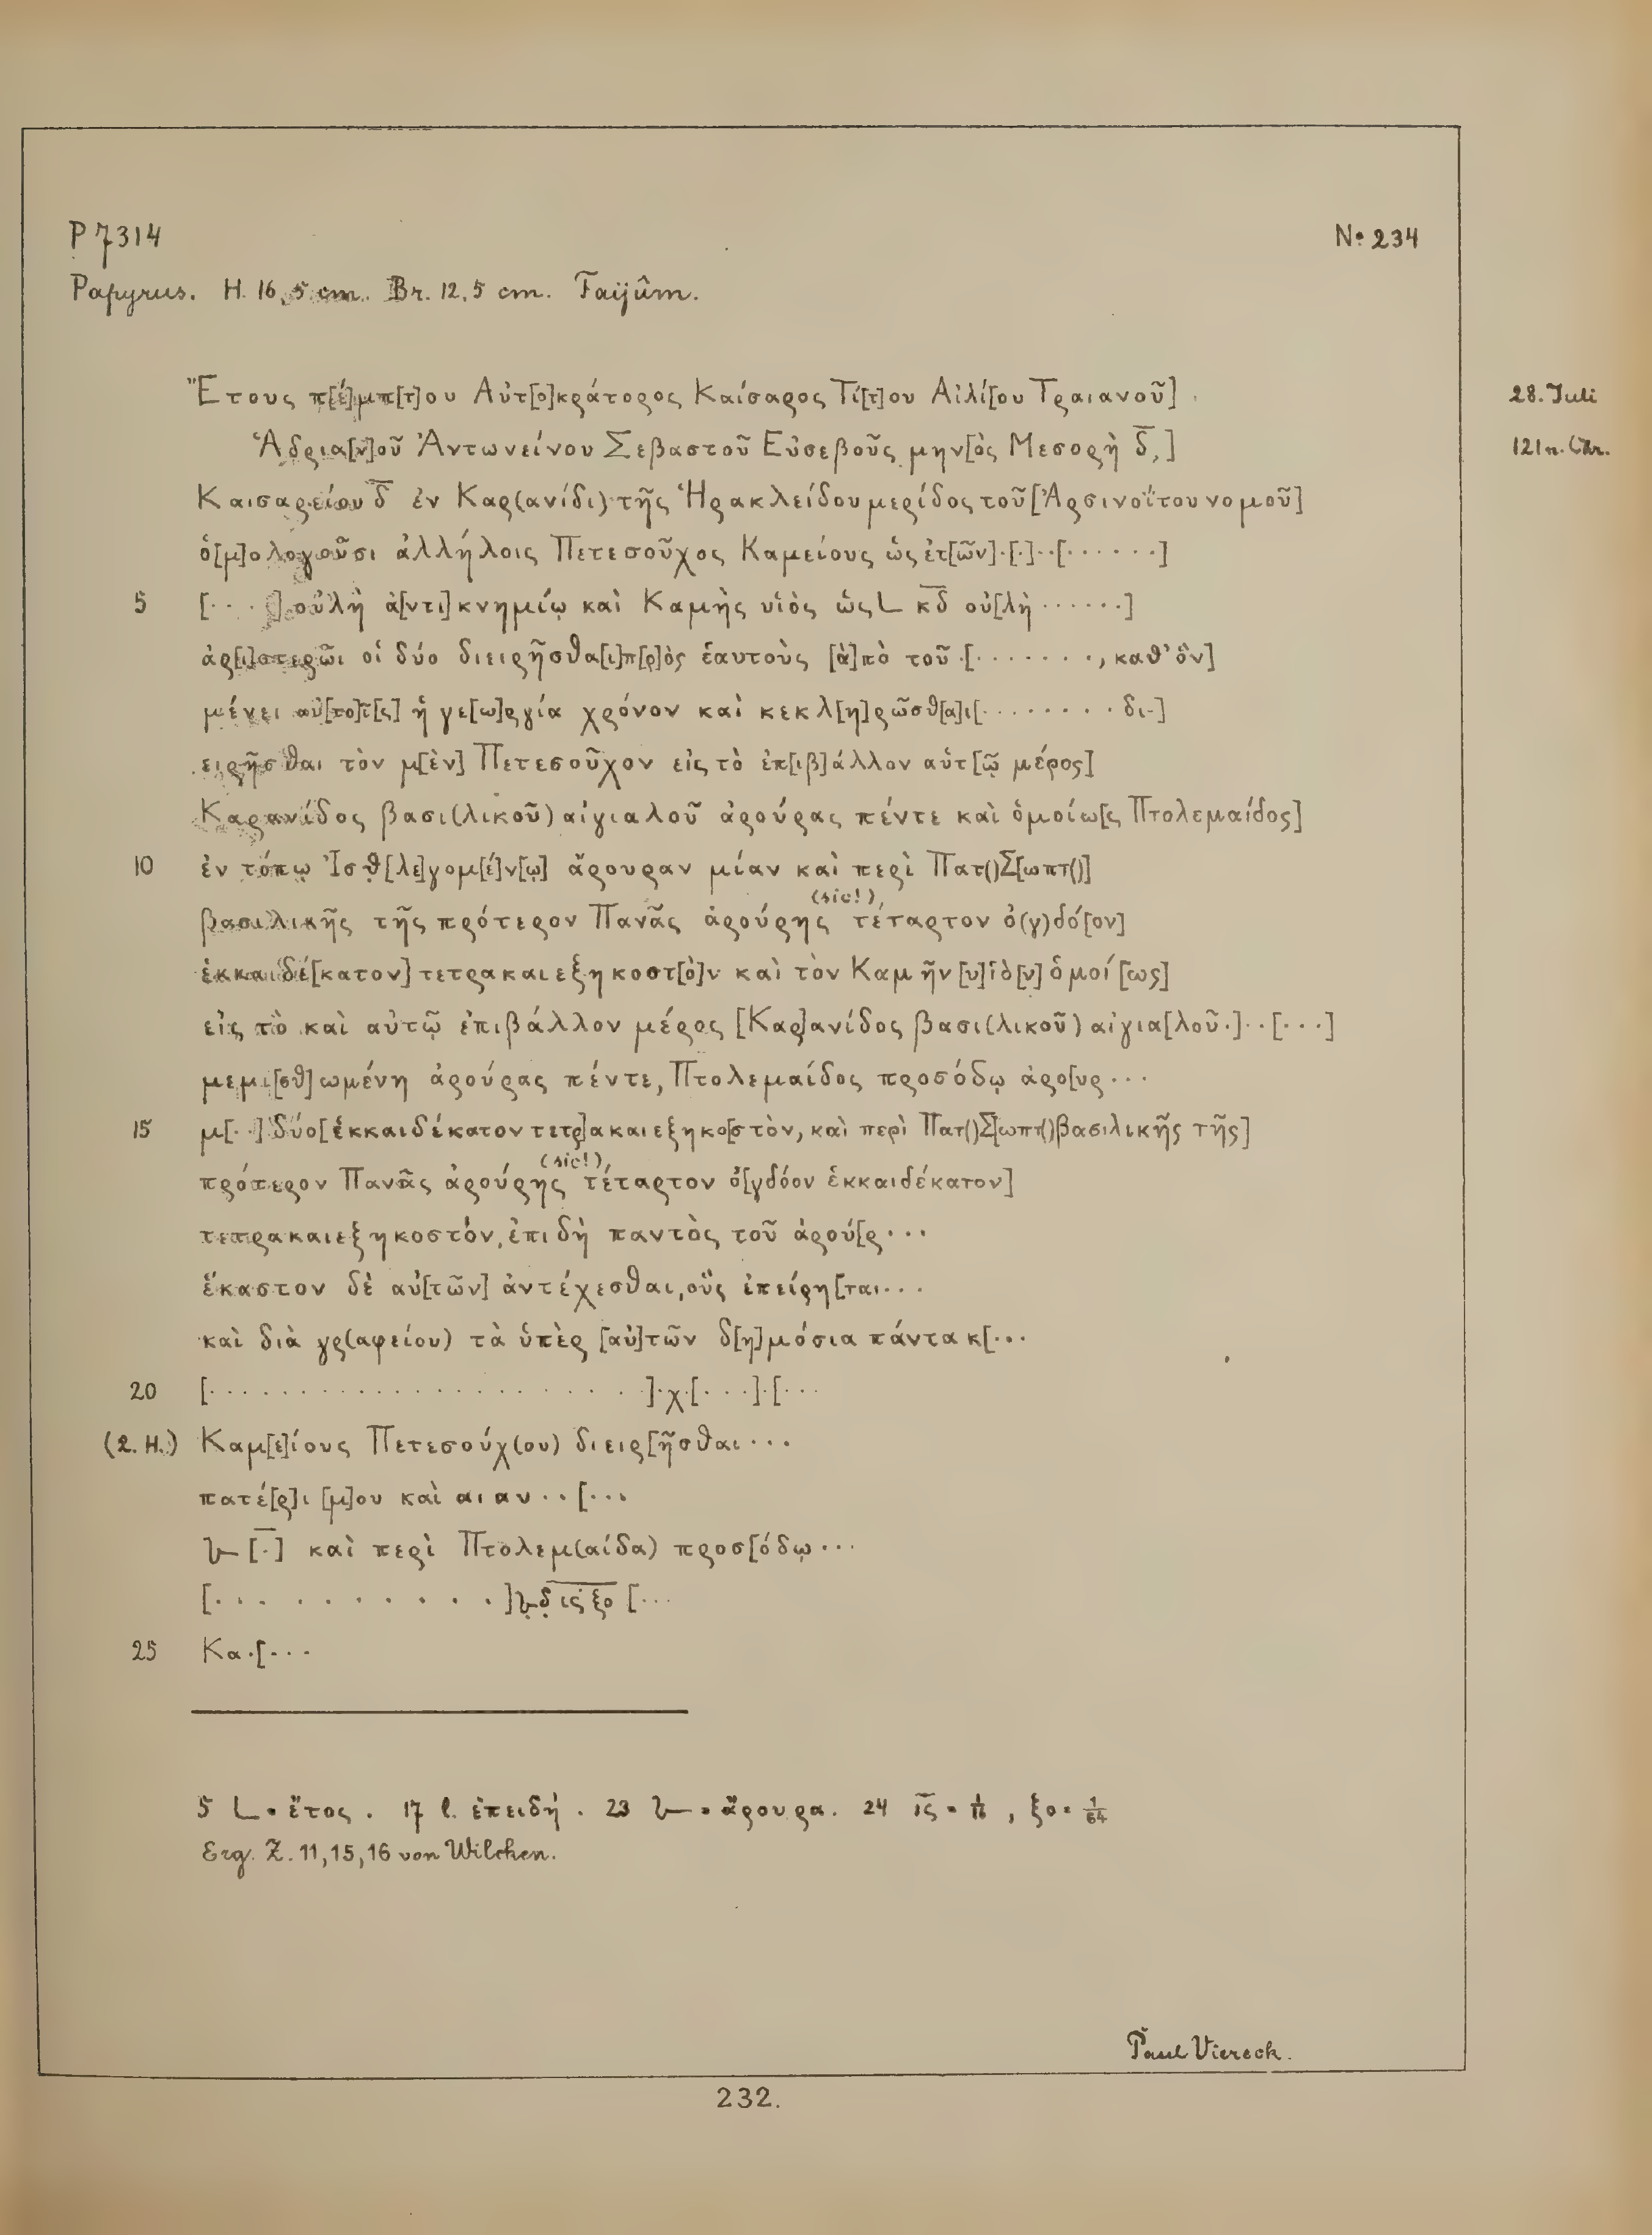 P 7314
No 234
Papyrus. H. 16,5 cm. Br. 12,5 cm. Faijûm.
Ἔτους π[έ]μπ[τ]ου Αὐτ[ο]κράτορος Καίσαρος Τί[τ]ου Αἰλί[ου Τραιανοῦ]
28. Juli
Ἁδρια[ν]οῦ Ἀντωνείνου Σεβαστοῦ Εὐσεβοῦς μην[ὸς Μεσορὴ δ̅,]
121 n. Chr.
Καισαρείου δ̅ ἐν Καρ(ανίδι) τῆς Ἡρακλείδου μερίδος τοῦ [Ἀρσινοΐτου νομοῦ]
ὁ[μ]ολογοῦσι ἀλλήλοις Πετεσοῦχος Καμείους ὡς ἐτ[ῶν]·[·]··[······]
5 [····]οὐλὴ ἀ[ντι]κνημίῳ καὶ Καμῆς υἱὸς ὡς L κ̅δ̅ οὐ[λὴ ······]
ἀρ[ι]στερῶι οἱ δύο διειρῆσθα[ι] π[ρ]ὸς ἑαυτοὺς [ἀ]πὸ τοῦ ·[·······, καθ' ὃν]
μένει αὐ[το]ῖ[ς] ἡ γε[ω]ργία χρόνον καὶ κεκλ[η]ρῶσθ[α]ι[········ δι-]
ειρῆσθαι τὸν μ[ὲν] Πετεσοῦχον εἰς τὸ ἐπ[ιβ]άλλον αὐτ[ῷ μέρος]
Καρανίδος βασι(λικοῦ) αἰγιαλοῦ ἀρούρας πέντε καὶ ὁμοίω[ς Πτολεμαίδος]
10 ἐν τόπῳ Ἰσθ̣[λε]γομ[έ]ν[ῳ] ἄρουραν μίαν καὶ περὶ Πατ() Σ[ωπτ()]
βασιλικῆς τῆς πρότερον Πανᾶς ἀρούρης (sic!) τέταρτον ὀ(γ)δό[ον]
ἑκκαιδέ[κατον] τετρακαιεξηκοστ[ὸ]ν καὶ τὸν Καμῆν [υ]ἱὸ[ν] ὁμοί[ως]
εἰς τὸ καὶ αὐτῷ ἐπιβάλλον μέρος [Καρ]ανίδος βασι(λικοῦ) αἰγια[λοῦ·]··[···]
μεμι[σθ]ωμένη ἀρούρας πέντε, Πτολεμαίδος προσόδῳ ἀρο[υρ···
15 μ[··] δύο [ἑκκαιδέκατον τετρ]ακαιεξηκο[στὸν, καὶ περὶ Πατ() Σ[ωπτ() βασιλικῆς τῆς]
πρότερον Πανᾶς ἀρούρης (sic!) τέταρτον ὄ[γδόον ἑκκαιδέκατον]
τετρακαιεξηκοστόν, ἐπιδὴ παντὸς τοῦ ἀρού[ρ···
ἕκαστον δὲ αὐ[τῶν] ἀντέχεσθαι, οὓς ἐπείρη[ται···
καὶ διὰ γρ(αφείου) τὰ ὑπὲρ [αὐ]τῶν δ[η]μόσια πάντα κ[···
20 [···················]·χ[···]·[···
(2. H.) Καμ[ε]ίους Πετεσούχ(ου) διειρ[ῆσθαι···
πατέ[ρ]ι [μ]ου καὶ αι αν··[···
𐅵 [·̅] καὶ περὶ Πτολεμ(αίδα) προσ[όδῳ···
[···········]𐅵 δ̣̅ ι̅ς̅ ξ̅ο̅ [···
25 Κα·[···
5 L = ἔτος. 17 l. ἐπειδή. 23 𐅵 = ἄρουρα. 24 ι̅ς̅ = 1/16, ξο = 1/64
Erg. Z. 11, 15, 16 von Wilcken.
Paul Viereck.
232.